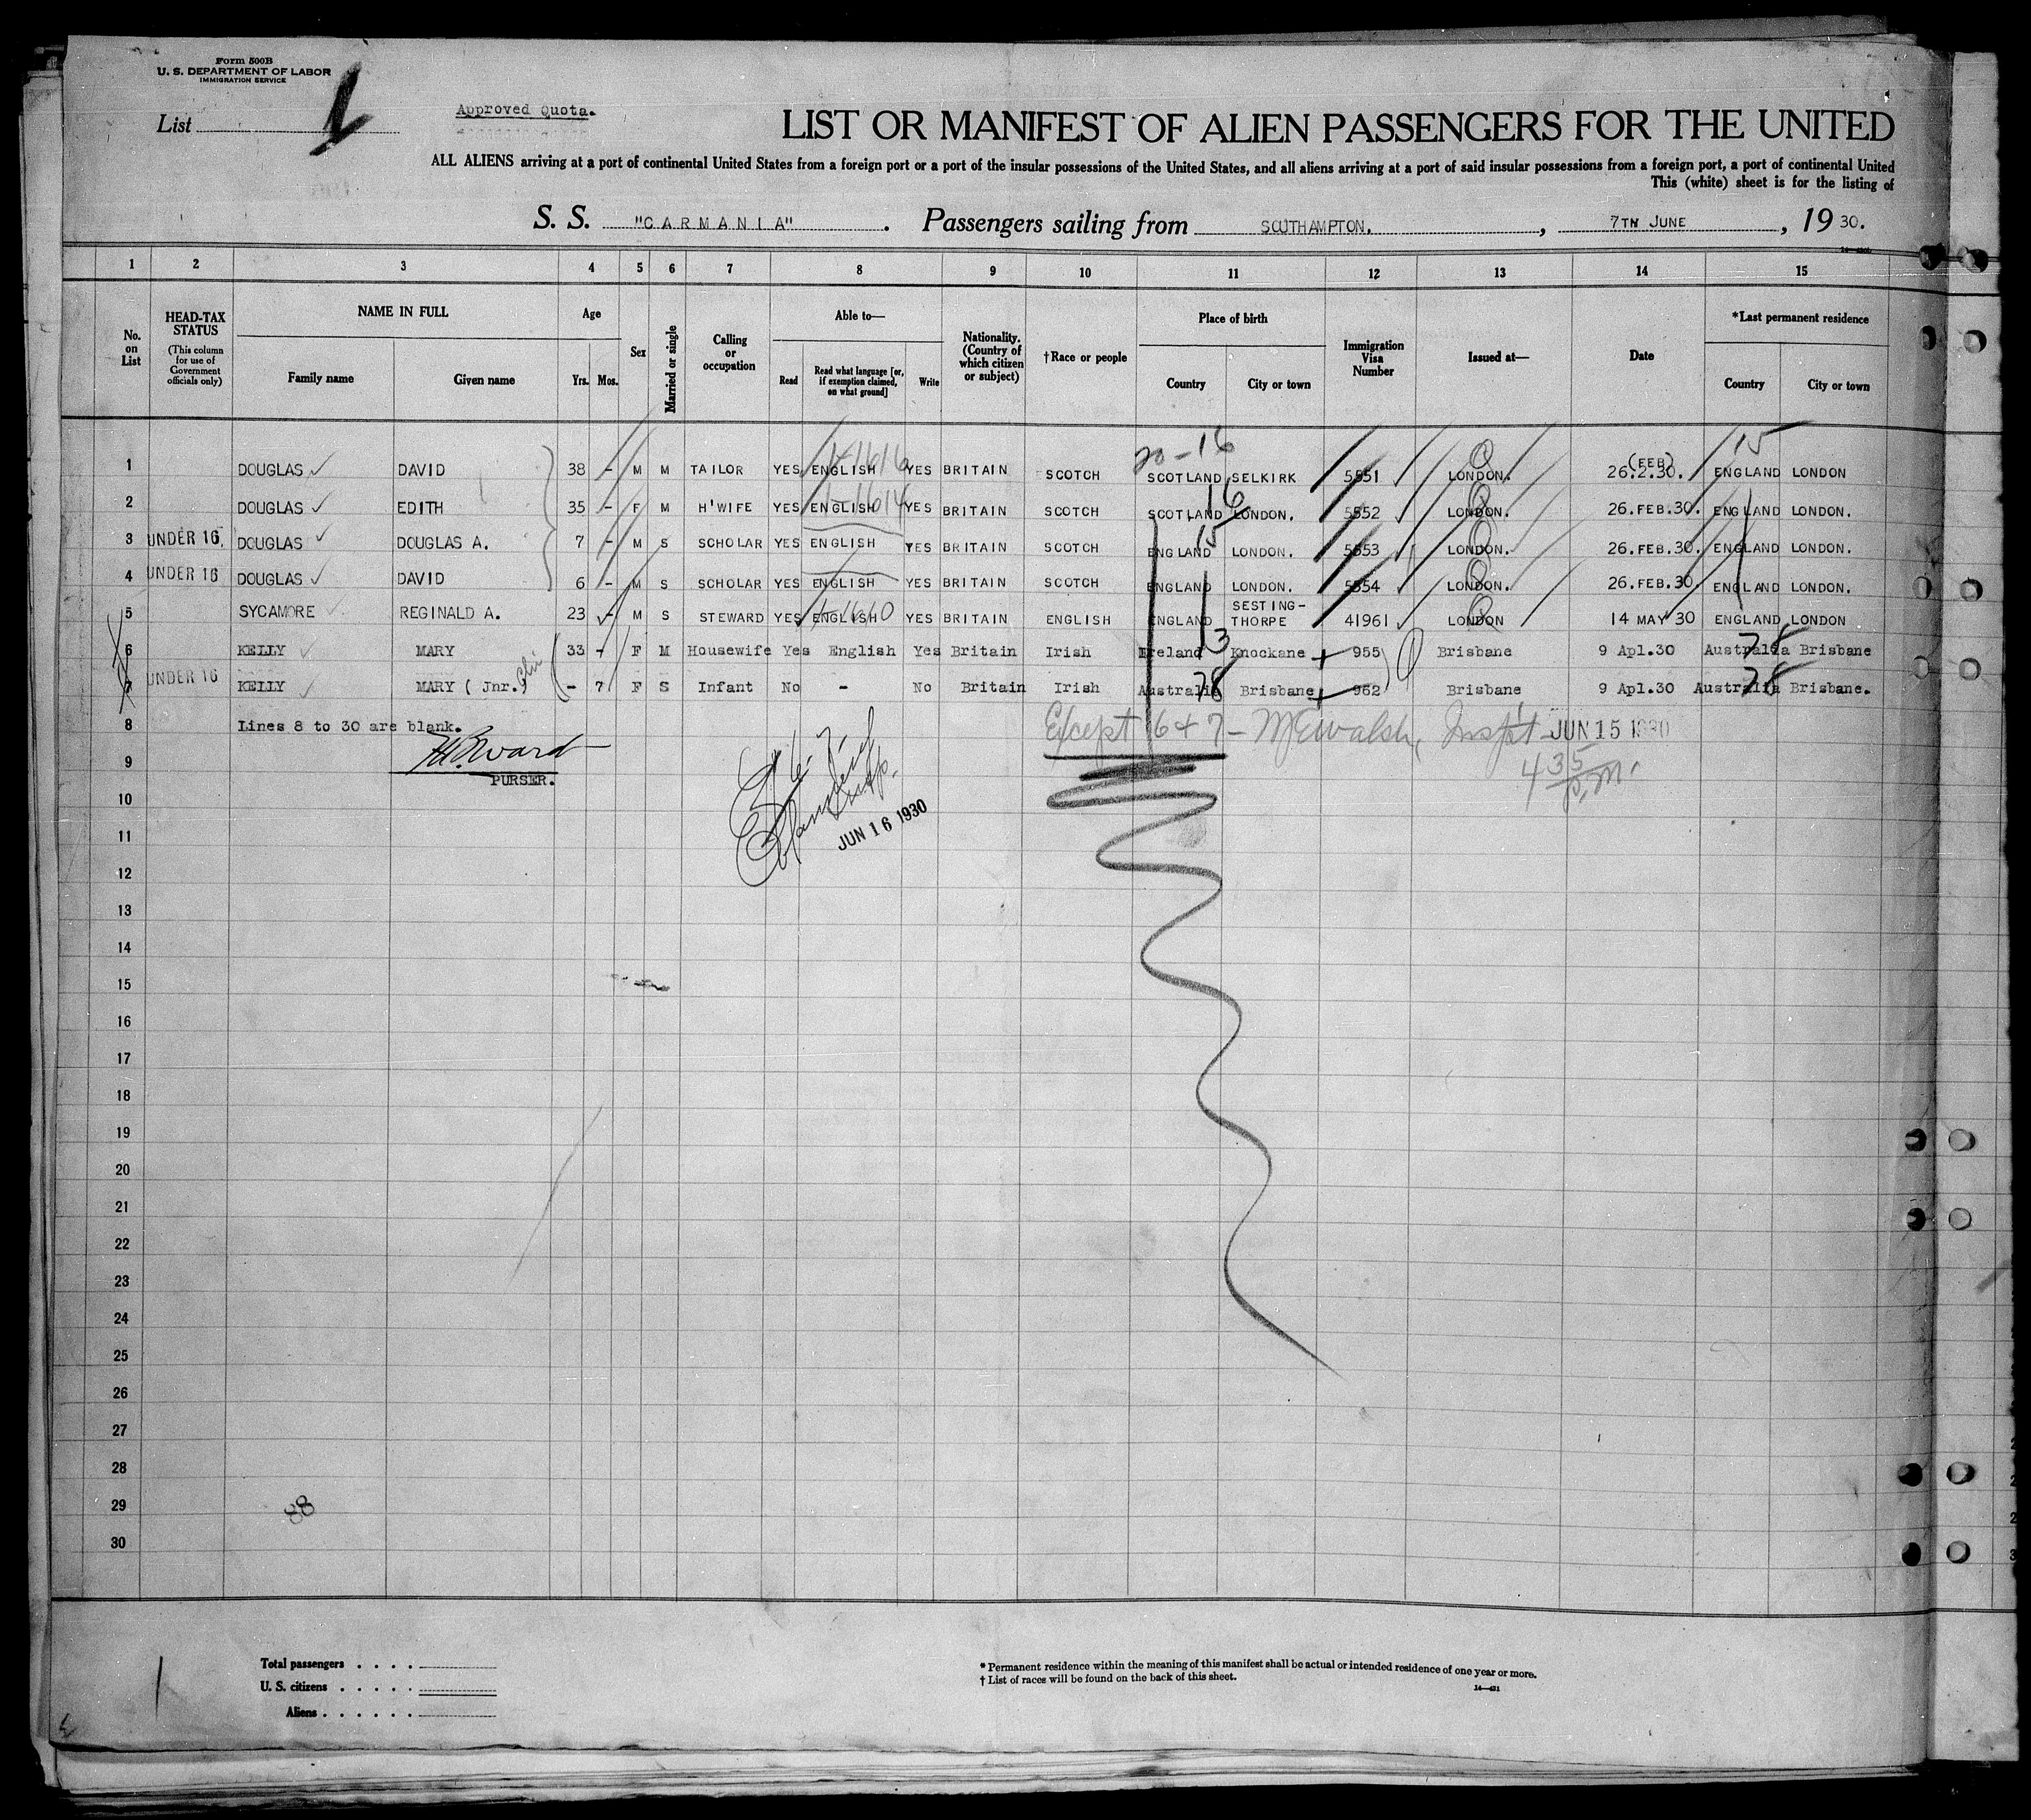 Form 500B
U. S. DEPARTMENT OF LABOR
IMMIGRATION SERVICE
List
Approved Quota.
LIST OR MANIFEST OF ALIEN PASSENGERS FOR THE UNITED
ALL ALIENS arriving at a port of continental United States from a foreign port or a port of the insular possessions of the United States, and all aliens arriving at a port of said insular possessions from a foreign port, a port of continental United
This (white) sheet is for the listing of
S. S. "CARMANIA" . Passengers sailing from SOUTHAMPTON. , 7TH JUNE , 19 30.
1 2 3 4 5 6 7 8 9 10 11 12 13 14 15
No. on List
HEAD-TAX STATUS
(This column for use of Government officials only)
NAME IN FULL
Family name
Given name
Age
Yrs. Mos.
Sex
Married or single
Calling or occupation
Able to—
Read
Read what language [or, if exemption claimed, on what ground]
Write
Nationality. (Country of which citizen or subject)
†Race or people
Place of birth
Country
City or town
Immigration Visa Number
Issued at—
Date
*Last permanent residence
Country
City or town
20-16 15
1 DOUGLAS DAVID 38 - M M TAILOR YES ENGLISH YES BRITAIN SCOTCH SCOTLAND SELKIRK 5551 LONDON. 26.2.30. (FEB) ENGLAND LONDON
16
2 DOUGLAS EDITH 35 - F M H'WIFE YES ENGLISH YES BRITAIN SCOTCH SCOTLAND LONDON. 5552 LONDON. 26.FEB.30. ENGLAND LONDON.
15
3 UNDER 16. DOUGLAS DOUGLAS A. 7 - M S SCHOLAR YES ENGLISH YES BRITAIN SCOTCH ENGLAND LONDON. 5553 LONDON. 26.FEB.30. ENGLAND LONDON.
4 UNDER 16 DOUGLAS DAVID 6 - M S SCHOLAR YES ENGLISH YES BRITAIN SCOTCH ENGLAND LONDON. 5554 LONDON. 26.FEB.30 ENGLAND LONDON.
5 SYCAMORE REGINALD A. 23 - M S STEWARD YES ENGLISH YES BRITAIN ENGLISH ENGLAND SESTING-THORPE 41961 LONDON 14 MAY 30 ENGLAND LONDON
13 78
6 KELLY MARY 33 - F M Housewife Yes English Yes Britain Irish Ireland Knockane 955 Brisbane 9 Apl.30 Australia Brisbane
78 78
7 UNDER 16 KELLY MARY ( Jnr.) - 7 F S Infant No - No Britain Irish Australia Brisbane 962 Brisbane 9 Apl.30 Australia Brisbane.
8 Lines 8 to 30 are blank. Except 6 & 7 - McWalsh, Insp't JUN 15 1930
9 PURSER. 4 35 p.m.
10
JUN 16 1930
11
12
13
14
15
16
17
18
19
20
21
22
23
24
25
26
27
28
29
88
30
Total passengers . . . .
U. S. citizens . . . . .
Aliens . . . . . .
* Permanent residence within the meaning of this manifest shall be actual or intended residence of one year or more.
† List of races will be found on the back of this sheet.